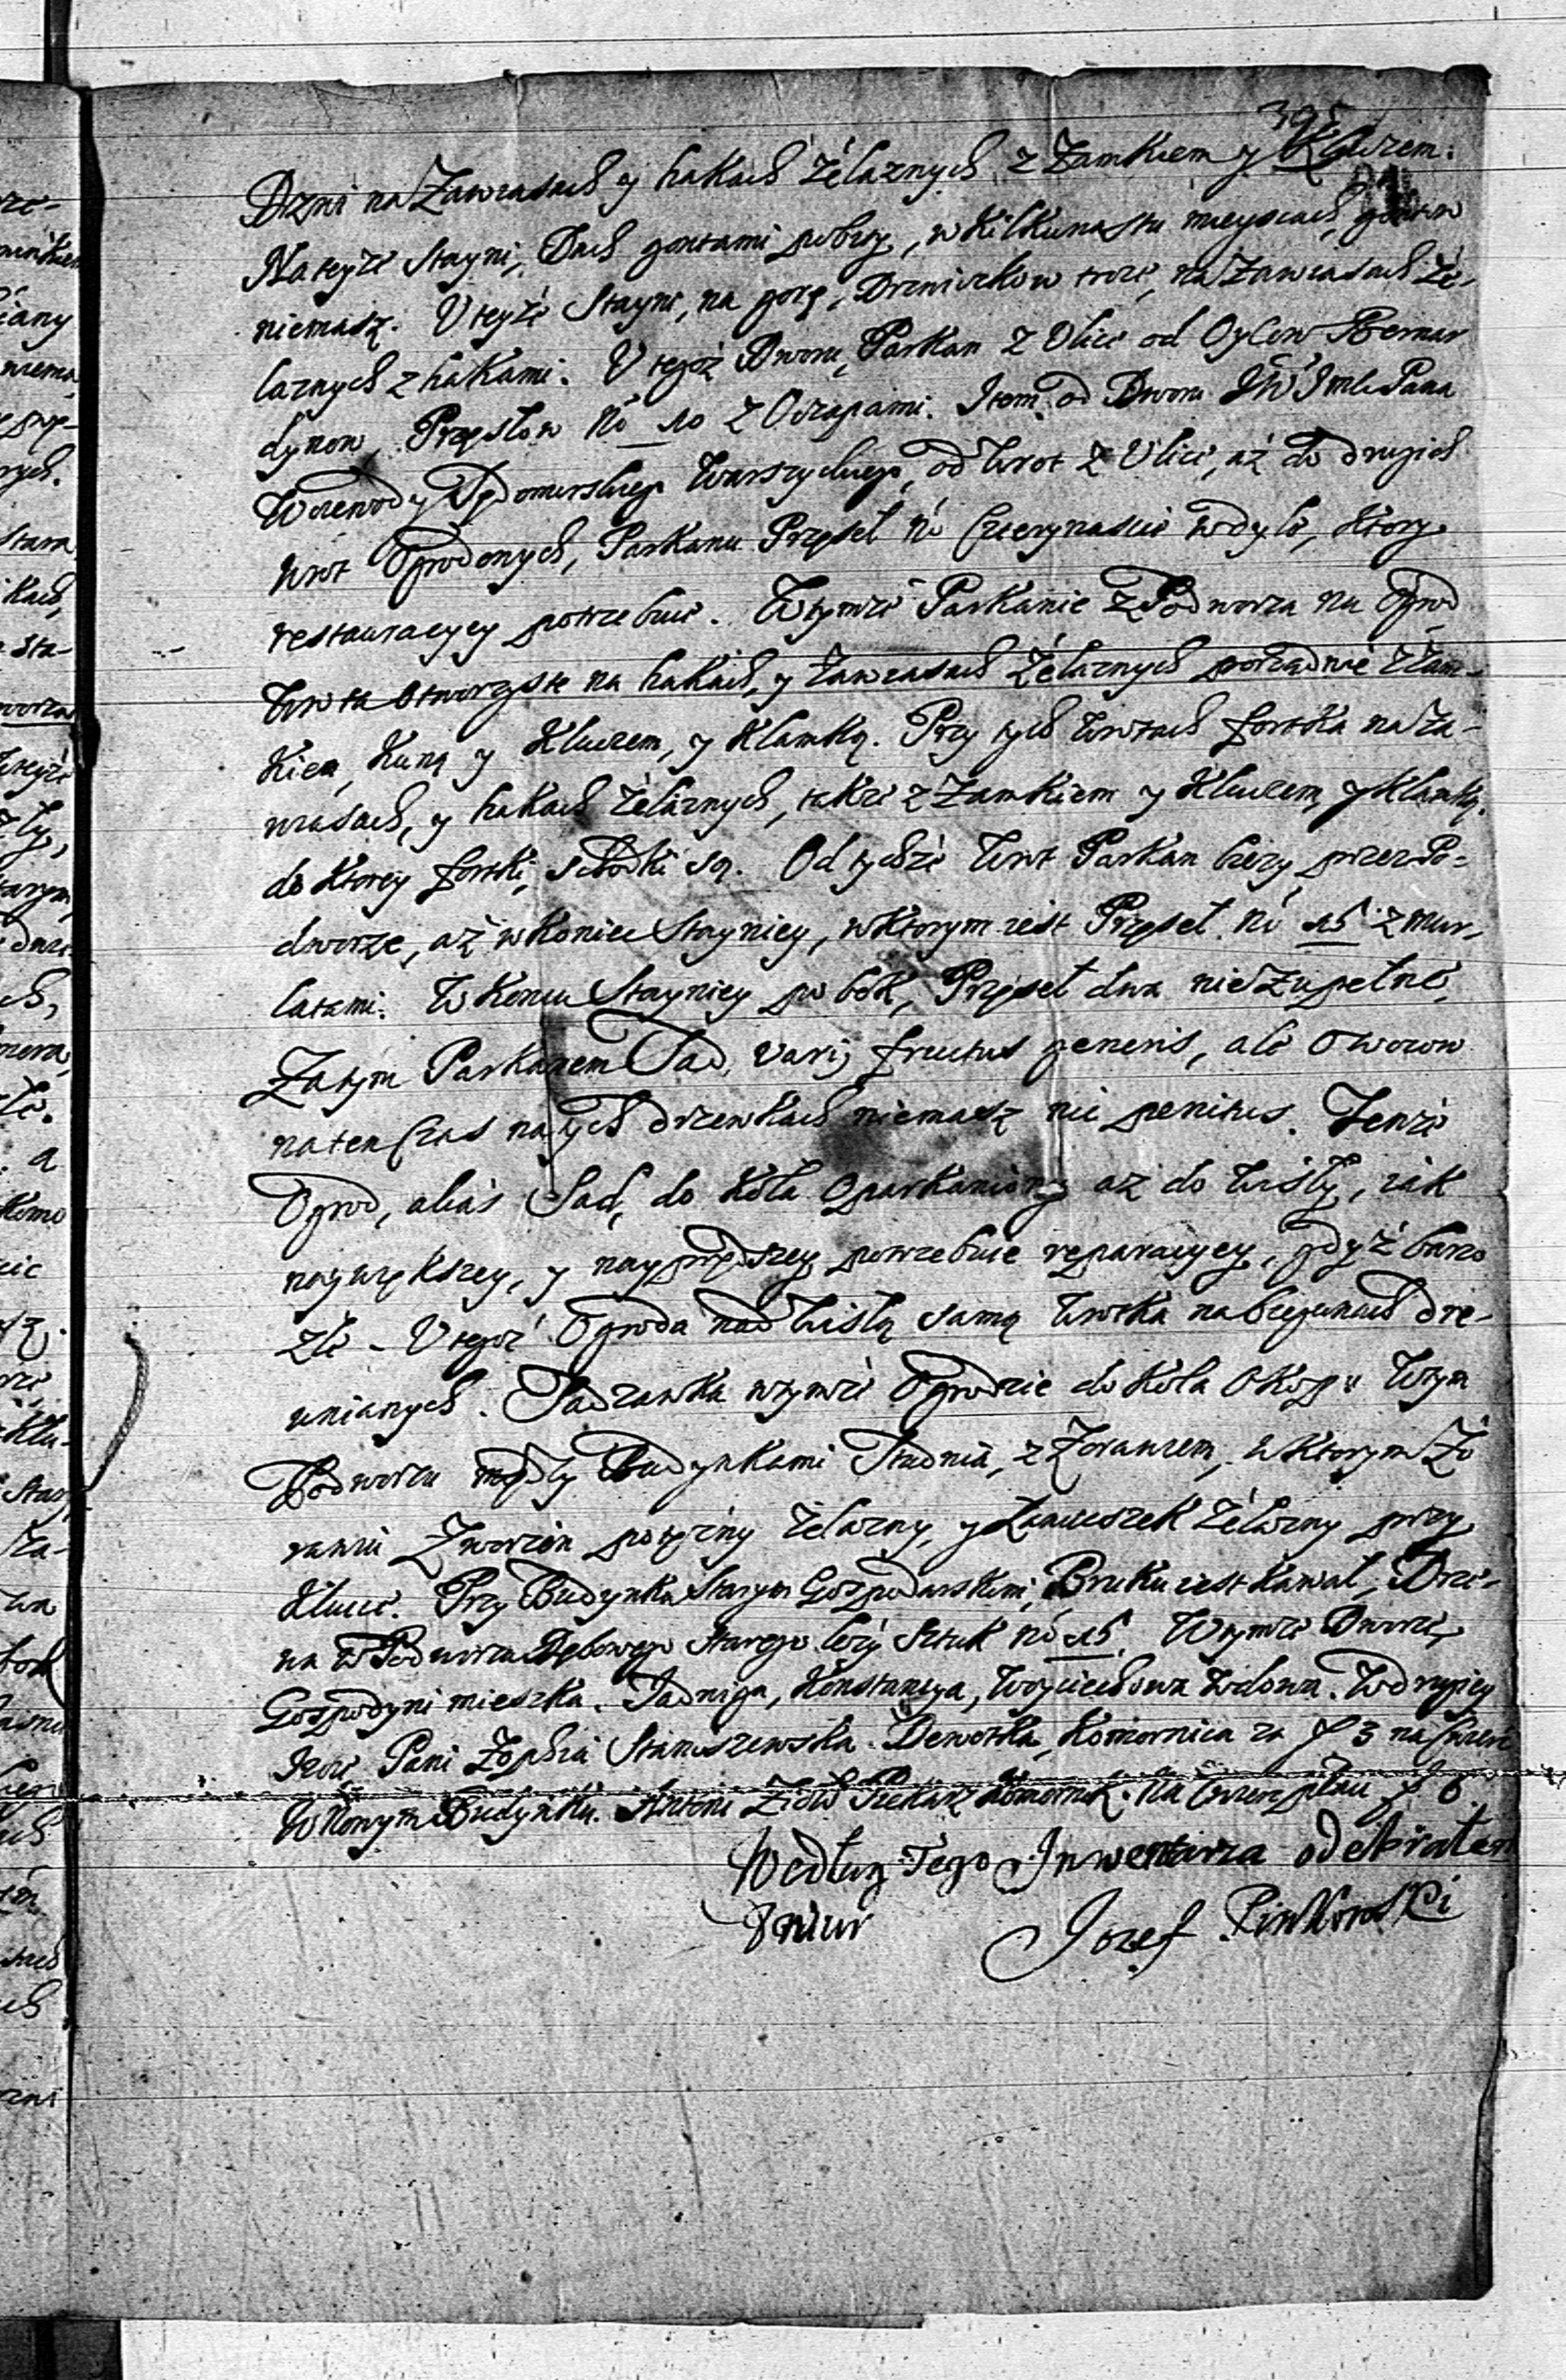 395
Drzwi na Zawiasach y hakach Żelaznych z Zamkiem y Kluczem.
Na teyże Stayni, Dach gontami pobity, w Kilkunastu mieyscach, gontow
niemasz. U teyże Stayni, na gorę, Drzwiczkow troie, na Zawiasach Że-
laznych z hakami. U tegoż Dworu, Parkan z Ulice od Oycow Bernar
dynow, Przęsłow No 10 z Oczapami. Item od Dworu JW Jmci Pana
Woiewody Sędomirskiego Warszyckiego, od Wrot z Ulice, aż do drugich
wrot Ogrodonych, Parkanu Przęseł No Czternascie w dyle, ktory
restauracyey potrzebuie. W tymże Parkanie z Podworza na Ogrod
Wrota Otworzyste na hakach, y Zawiasach Żelaznych porządnie z Zam-
kiem, Kuną y Kluczem, y Klamką. Przy tych Wrotach fortka na Za-
wiasach, y hakach Żelaznych, także z Zamkiem y Kluczem y Klamką.
do Ktorey fortki, schodki są. Od tychże Wrot Parkan bieży przez Po-
dworze, aż w Koniec Stayniey, w Ktorym iest Przęseł No 15 z mur-
łatami. W Koncu Stayniey po bok, Przęseł dwa nie Zupełne,
Za tym Parkanem Sad, varij fructus generis, ale Owocow
na ten Czas na tych drzewkach niemasz nic penitus. Tenże
Ogrod, alias Sad, do koła Oparkaniony aż do Wisły, iak
naywiększey, y nayprędszey potrzebuie reparacyey, gdyż barzo
złe. U tegoż Ogroda nad Wisłą samą Wrotka na biegunach Dre-
wnianych. Sadzawka w tymże Ogrodzie do Koła Okop: W tym
Podworzu między Budynkami Studnia, z Żorawiem, w Ktorym Żo
rawiu Zworzen potężny żelazny, y Łancuszek Żelazny przy
Kluce. Przy Budynku Starym Gospodarskim, Bruku iest kawał, Drze-
wa w Podworzu Dębowego starego leży Sztuk No 15. W tymże Dworze,
Gospodyni mieszka. Jadwiga, Konstancya, Woyciechowa Wdowa. W drugiey
Izbie Pani Zophia Staniszewska. Dewotka, Komornica za f 3 na
W Nowym Budynku. Antoni Piekarz Komornik. Na f 6.
Według Tego Inwentarza odebrałem
Dwur Jozef Pinkowski